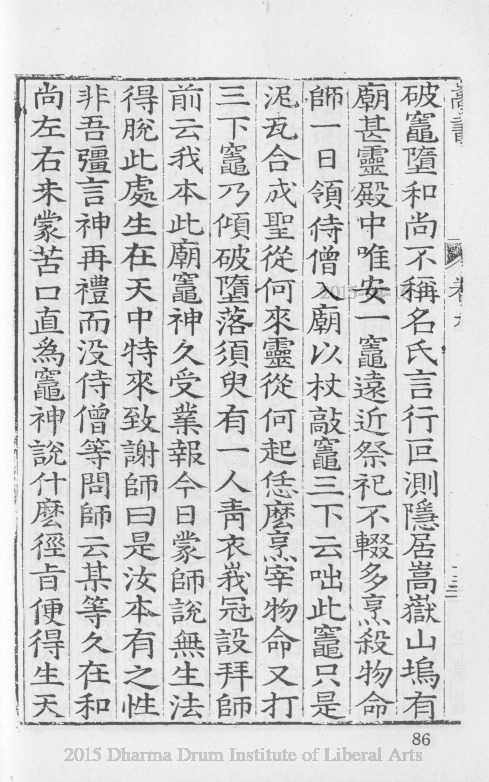 破竈墮和尚不稱名氏言行叵測隱居嵩嶽山塢有
廟甚靈殿中唯安一竈遠近祭祀不輟多烹殺物命
師一日領侍僧入廟以杖敲竈三下云咄此竈只是
泥瓦合成聖從何來靈從何起恁麼烹宰物命又打
三下竈乃傾破墮落須臾有一人青衣峩冠設拜師
前云我本此廟竈神久受業報今日蒙師說無生法
得脫此處生在天中特來致謝師曰是汝本有之性
非吾彊言神再禮而没侍僧等問師云某等久在和
尚左右未蒙苦口直為竈神說什麼徑旨便得生天
86
2015 Dharma Drum Institute of Liberal Arts